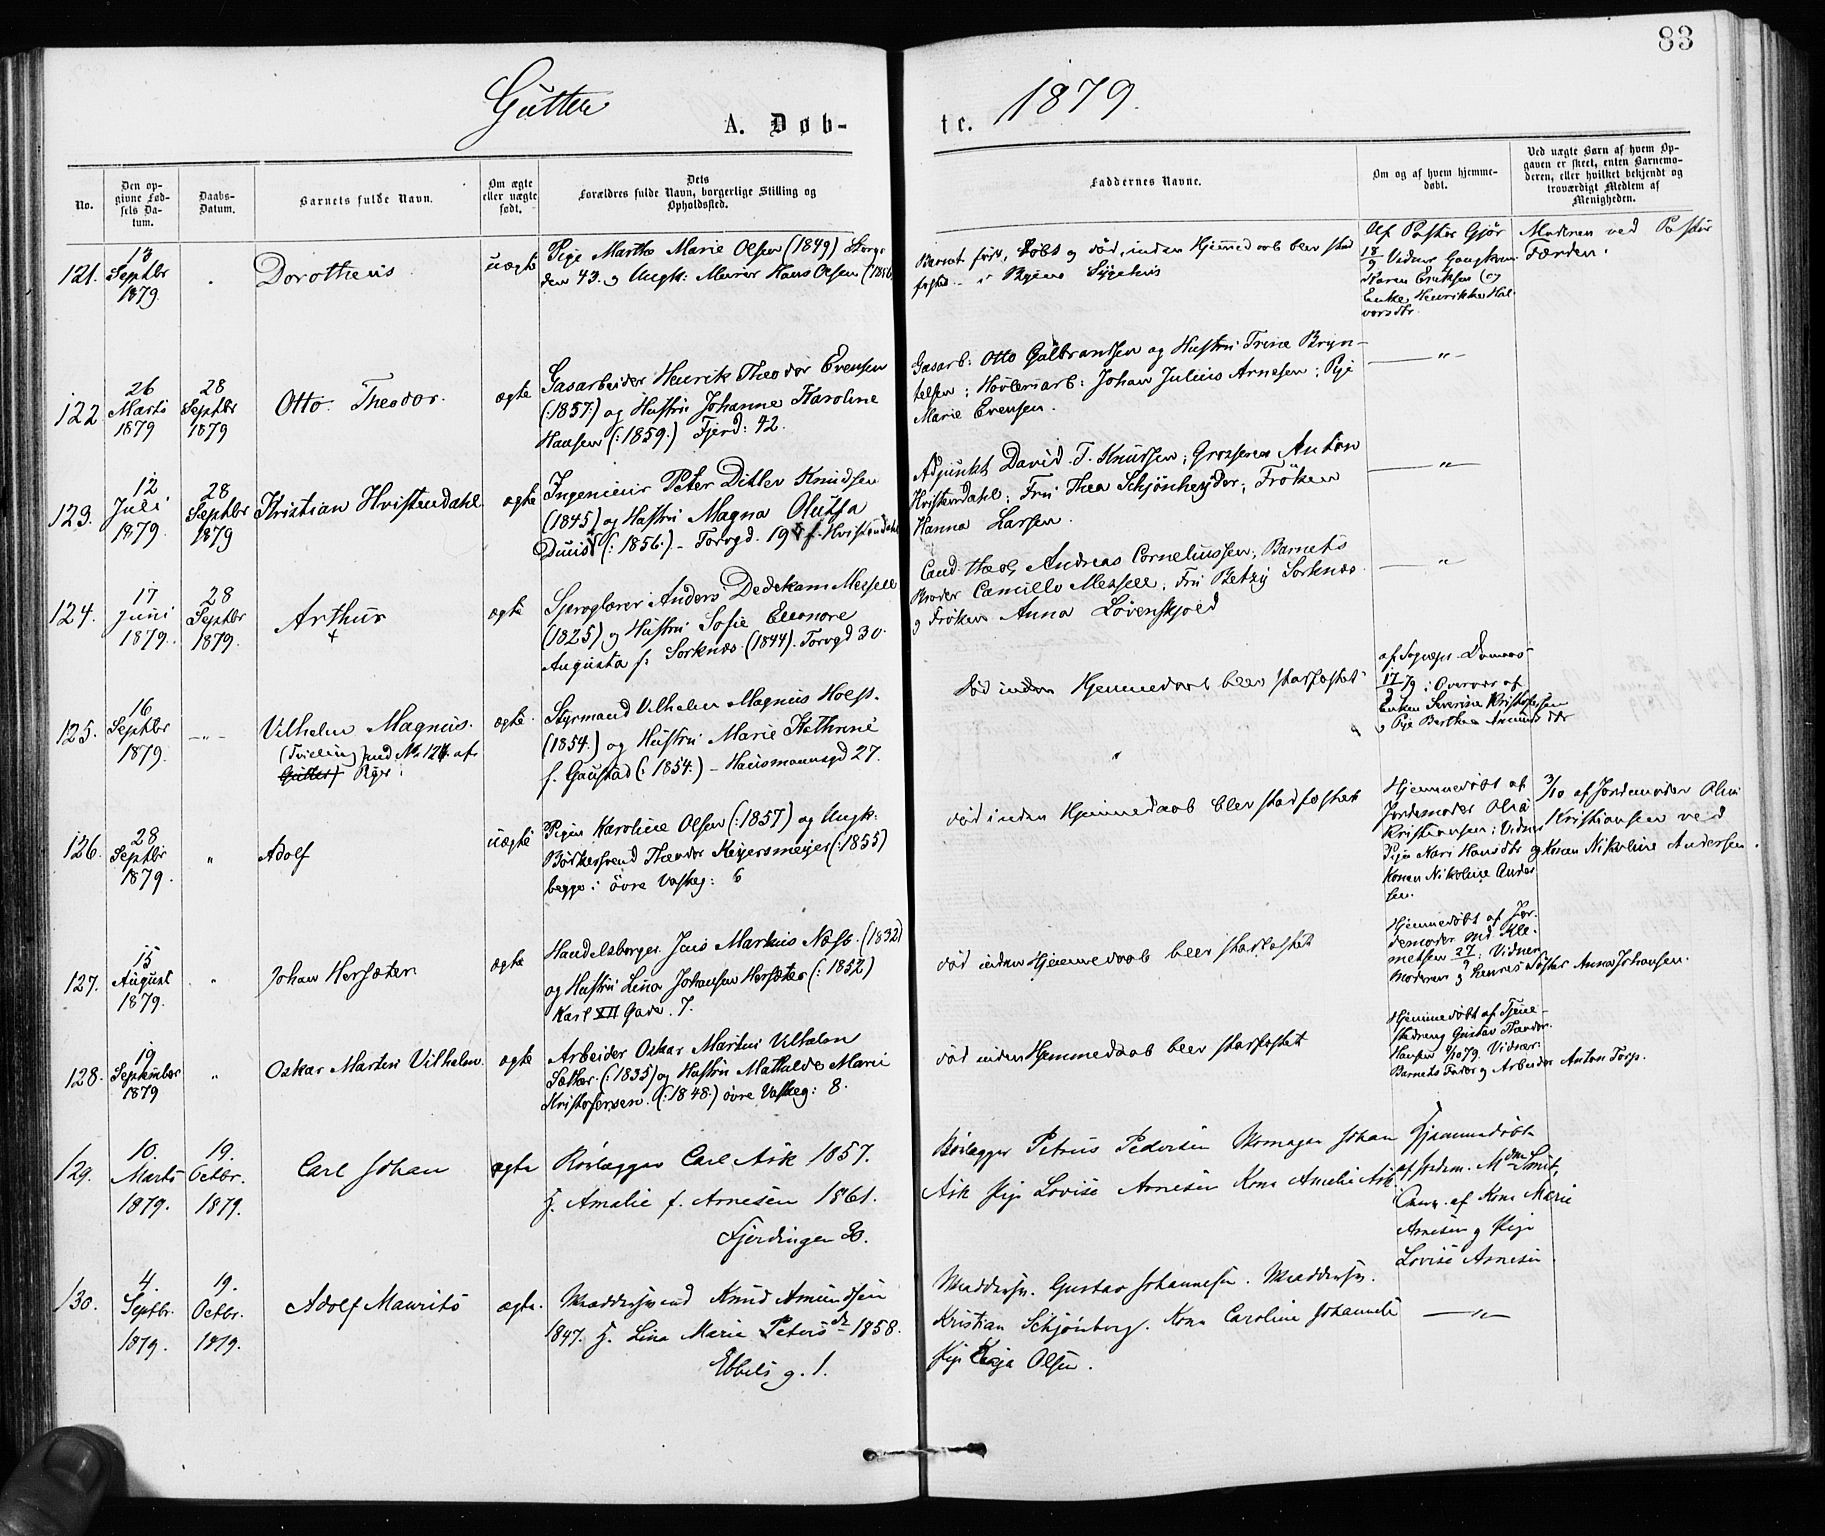 83
Gutter 1879.
A. Døb- te.
No.
Den op-
givne Fød-
sels Da-
tum.
Daabs-
Datum.
Barnets fulde Navn.
Om ægte
eller uægte
født.
Dets
Forældres fulde Navn, borgerlige Stilling og
Opholdssted.
Faddernes Navne.
Om og af hvem hjemme-
døbt.
Ved uægte Børn af hvem Op-
gaven er skeet, enten Barnemo-
deren, eller hvilket bekjendt og
troværdigt Medlem af
Menigheden.
121.
13
Septbr
1879
"
Dorotheus
uægte
Pige Marthe Marie Olsen (1849) Storga
den 43. og Ungk: Murer Hans Olsen (1856
Barnet født, døbt og død, inden Hjemmedaab blev stad
fæstet - i Byens Sygehus
Af Pastor Gjør
18/9 Vidner Gangkone
Karen Eriksen og
Enke Henrikke Hal-
vorsdtr.
Moderen ved Pastor
Færden.
122.
26
Marts
1879
28
Septbr
1879
Otto Theodor.
ægte
Gasarbeider Henrik Theodor Evensen
(:1857) og Hustru Johanne Karoline
Hansen (:1859.) Fjerd: 42.
Gasarb: Otto Gulbrandsen og Hustru Trine Bryn-
telsen; Høvleriarb: Johan Julius Arnesen; Pige
Marie Evensen.
— " —
123.
12
Juli
1879.
28
Septbr
1879
Kristian Hvistendahl
ægte
Ingeniør Peter Ditlev Knudsen
(1845) og Hustru Magna Olutfa
(:1856.) - Torvgd. 19 f. Hvistendahl
Adjunkt David T. Knudsen; Grosserer Anton
Hvistendahl; Fru Thea Schjönheyder; Fröken
Hanna Larsen.
— " —
124.
17
Juni
1879.
28
Septbr
1879.
Arthur
+
ægte
Anders Dedekam Mejdell
(1825) og Hustru Sofie Eleonore
Augusta f: Sorknæs (1844). Torvgd 30.
Cand. Theol. Andreas Corneliussen; Barnets
Broder Camillo Mejdell; Fru Betzy Sorknæs
og Fröken Anna Lövenskjold
— " —
125.
16
Septbr
1879.
— " —
Vilhelm Magnus.
(Tvilling) med No 124 af
Gutter) Piger:
ægte.
Styrmand Vilhelm Magnus Holst.
(1854.) og Hustru Marie Kathrine
f. Gaustad (:1854.) - Hausmannsgd 27.
Död inden Hjemmedaab blev stadfæstet
"
af Sognepr. Damaas
17/9 79 i Overvær af
Enken Severine Kristofersen
og Pige Berthea Amundsdtr
126.
28
Septbr
1879.
"
Adolf
uægte
Pigen Karoline Olsen (:1857) og Ungk:
Bödkersvend Theodor Keijersmeijer (:1855)
begge i övre Vaskeg: 6
död inden Hjemmedaab blev stadfæstet
Hjemmedöbt af
Jordemoder Olea
Kristiansen; Vidner
Pige Kari Hansdtr og
Konen Nikoline Ander
sen.
3/10 af Jordemoder Olea
Kristiansen ved
Konen Nikoline Andersen.
127.
15
August
1879.
"
Johan Hersæter
ægte
Handelsborger Jens Markus Næss. (1832)
og Hustru Lina Johansen Hersæter (:1852)
Karl XII Gade. 7.
död inden Hjemmedaab blev stadfæstet
Hjemmedöbt af Jor-
demoder Md Kle-
metsen 27/9; Vidner
Moderen og hendes Söster Anna Johansen.
128.
19
September
1879
"
Oskar Martin Vilhelm.
ægte
Arbeider Oskar Martin Vilhelm
Sæther. (:1835) og Hustru Mathilde Marie
Kristofersen. (:1848.) övre Vaskeg: 8.
död inden Hjemmedaab blev stadfæstet
Hjemmedöbt af Tjene-
stedreng Gustav Theodor
Hansen 9/10 79. Vidner
Barnets Fader og Arbeider Anton Torp.
129.
10.
Marts
1879.
19.
Octbr.
1879.
Carl Johan
ægte
Rørlægger Carl Ask 1857.
H. Amalie f. Arnesen 1861.
Fjerdingen 30.
Rørlægger Petrus Pedersen Skomager Johan
Ask Pige Lovise Arnesen Kone Amelie Ask.
Hjemmedöbt
af Jordem. Mdm Smit,
af Kone Marie
Arnesen og Pige
Lovise Arnesen
130.
4.
Septbr.
1879.
19.
Octbr.
1879.
Adolf Maurits
ægte.
Skræddersvend Knud Amundsen
1847. H. Lina Marie Petersdr 1858.
Ebbels g. 1.
Skræddersv. Gustav Johannesen. Skræddersv.
Kristian Schjönberg. Kone Caroline Johannes
Pige Olsen.
— " —